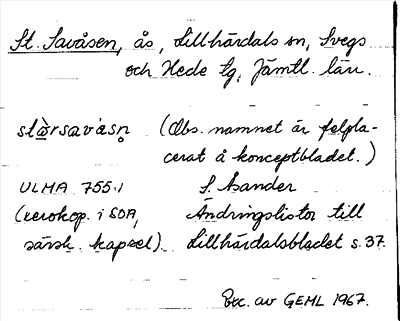 St. Savåsen, ås, Lillhärdals sn, Svegs
och Hede tg, Jämtl. län.
stòrsavåsn̥ (Obs. namnet är felpla-
cerat å konceptbladet.)
ULMA 755:1 S. Asander
(xerokop. i SOA, Ändringslistor till
särsk. kapsel). Lillhärdalsbladet s. 37.
Exc. av GEHL 1967.